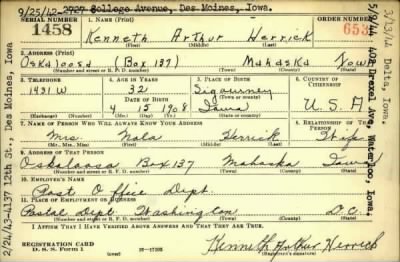 9/25/42- 2727 College Avenue, Des Moines, Iowa.
SERIAL NUMBER 1. NAME (Print) ORDER NUMBER
1458 Kenneth Arthur Herrick 653
(First) (Middle) (Last)
2. ADDRESS (Print)
Oskaloosa (Box 137) Mahaska Iowa
(Number and street or R. F. D. number) (Town) (County) (State)
3. TELEPHONE 4. AGE IN YEARS 5. PLACE OF BIRTH 6. COUNTRY OF CITIZENSHIP
1431 W 32 Sigourney
DATE OF BIRTH (Town or county)
4 5 1908 Iowa U.S.A
(Mo.) (Day) (Yr.) (State or country)
7. NAME OF PERSON WHO WILL ALWAYS KNOW YOUR ADDRESS 8. RELATIONSHIP OF THAT PERSON
Mrs. Nola Herrick Wife
(Mr., Mrs., Miss) (First) (Middle) (Last)
9. ADDRESS OF THAT PERSON
Oskaloosa Box 137 Mahaska Iowa
(Number and street or R. F. D. number) (Town) (County) (State)
10. EMPLOYER'S NAME
Post Office Dept.
11. PLACE OF EMPLOYMENT OR BUSINESS
Postal Dept. Washington D.C.
(Number and street or R. F. D. number) (Town) (County) (State)
I AFFIRM THAT I HAVE VERIFIED ABOVE ANSWERS AND THAT THEY ARE TRUE.
REGISTRATION CARD
D. S. S. Form 1
(over)
Kenneth Arthur Herrick
(Registrant's signature)
2/24/43-4137 12th St., Des Moines, Iowa
402 Drexel Ave, Waterloo, Iowa.
Delta, Iowa.